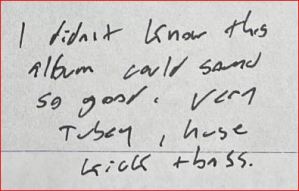 I didn't know this
album could sound
so good. Very
Tubey, huge
kick + bass.